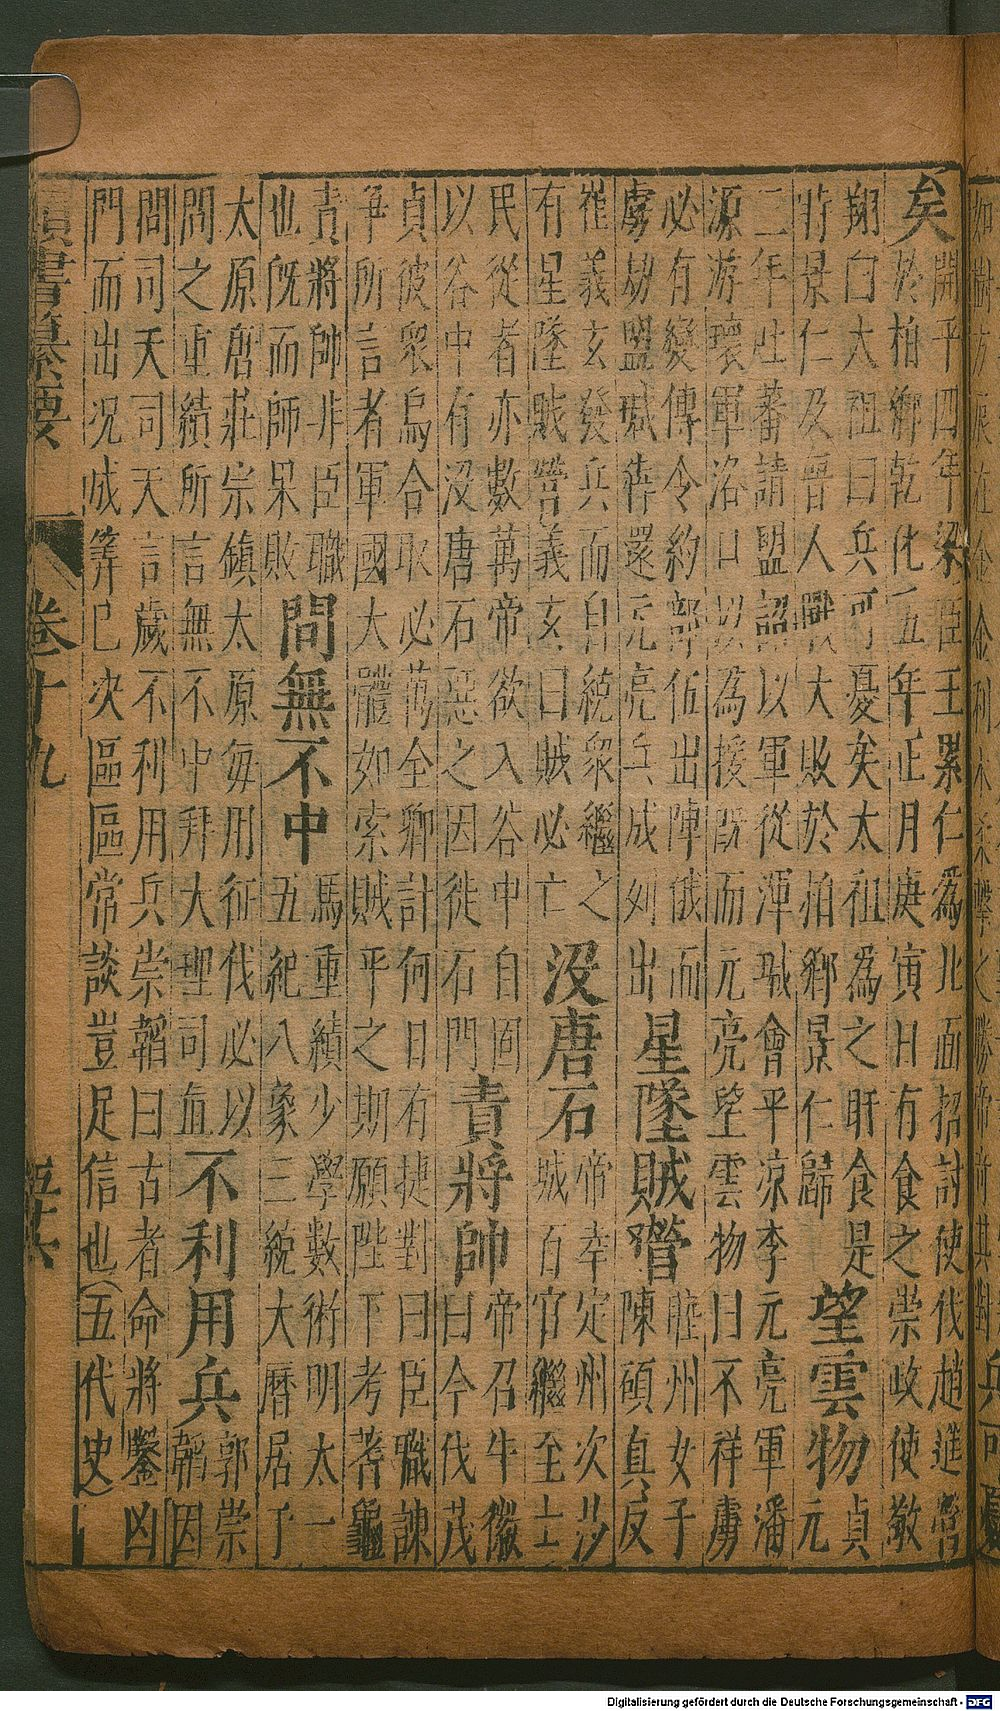 矣
開平四年梁臣王累仁爲北面招討使伐趙進營
於柏鄉乾化五年正月庚寅日有食之崇政使敬
翔曰大祖曰兵可憂矣太祖為之旰食是
將景仁及晉人戰大敗於柏鄉景仁歸
望雲物
貞
元
三年吐蕃請盟詔以軍從渾瑊會平凉李元亮軍潘
源游瓌軍洛口以為援既而元亮望雲物曰不祥虜
必有變傳令約部伍出陣俄而
虜劫盟瑊奔還元亮兵成列出
星墜賊營
睦州女子
陳碩真反
崔義玄發兵而自統衆繼之
有星墜賊營義玄曰賊必亡
没唐石
帝幸定州次沙
城百官繼至士
民從者亦數萬帝欲入谷中自固
以谷中有没唐石惡之因徙石門
責將帥
帝召牛徽
曰今伐茂
貞彼衆烏合取必萬全卿計何日有捷對曰臣職諫
爭所言者軍國大體如索賊平之期願陛下考蓍龜
責將帥非臣職
也旣而師果敗
問無不中
馬重績少學數術明太一
五紀八象三統大曆居于
太原唐莊宗鎮太原每用征伐必以
問之重績所言無不中拜大理司直
不利用兵
郭崇
韜因
問司天司天言歲不利用兵崇韜曰古者命將鑿凶
門而出况成筭已决區區常談豈足信也(五代史)
類書纂要 卷十九 五十六
Digitalisierung gefördert durch die Deutsche Forschungsgemeinschaft - DFG